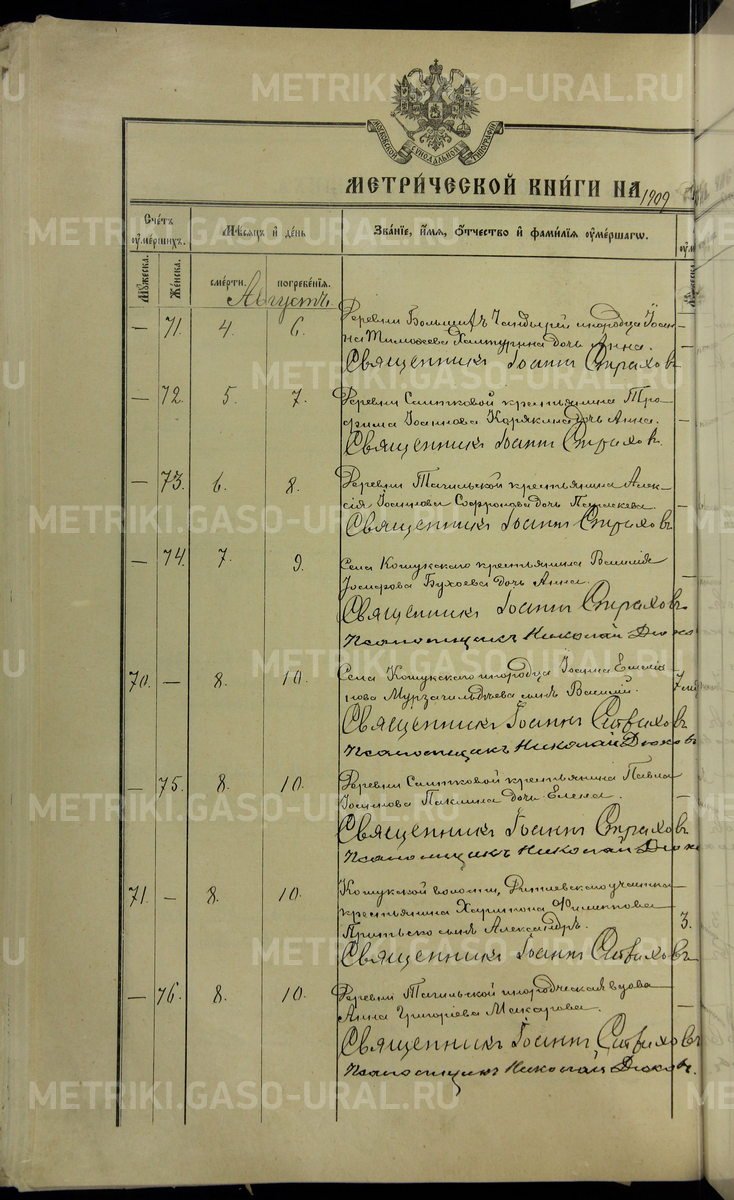 МОСКОВСКОЙ СѴНОДАЛЬНОЙ ТИПОГРАФІИ
МЕТРИ́ЧЕСКОЙ КНИ́ГИ НА 1909
Сче́тъ ᲂу҆ме́ршихъ.
Мѣ́сяцъ и҆ де́нь
Зва́нїе, и҆́мѧ, ѻ҆́тчество и҆ фами́лїѧ ᲂу҆ме́ршагѡ.
Мꙋ́жеска.
Же́нска.
сме́рти.
погребе́нїѧ.
Августъ
— 71. 4. 6. Деревни Большихъ Чандырей инородца Іоан-
на Тимоѳеева Халтурина дочь Анна.
Священникъ Іоаннъ Страховъ
— 72. 5. 7. Деревни Саитковой крестьянина Тро-
фима Іоаннова Корякина дочь Анна.
Священникъ Іоаннъ Страховъ.
— 73. 6. 8. Деревни Тагильской крестьянина Алек-
сія Іоаннова Софронова дочь Параскева.
Священникъ Іоаннъ Страховъ
— 74. 7. 9. Села Кошукскаго крестьянина Василія
Бухоева дочь Анна.
Священникъ Іоаннъ Страховъ
Псаломщикъ Николай Дюко
70. — 8. 10. Села Кошукскаго инородца Іоанна
Мурзагильдѣева сынъ Василій.
Священникъ Іоаннъ Страховъ
Псаломщикъ Николай Дюковъ
— 75. 8. 10. Деревни Саитковой крестьянина Павла
Іоаннова Паклина дочь Елена.
Священникъ Іоаннъ Страховъ
Псаломщикъ Николай Дюко
71. — 8. 10. Кошукской волости, участка
крестьянина Харитона Филиппова
сынъ Александръ. 3.
Священникъ Іоаннъ Страховъ
— 76. 8. 10. Деревни Тагильской инородческая вдова
Анна Григоріева Макарова.
Священникъ Іоаннъ Страховъ
Псаломщикъ Николай Дюковъ.
METRIKI.GASO-URAL.RU